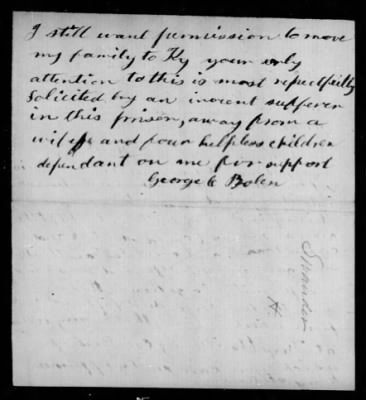 I still want permission to move
my family to Ky your only
attention to this is most repectfully
Solicited by an inocent supferer
in this prison, away from a
wife and four helpless children
dependant on me for support
George E Bolen